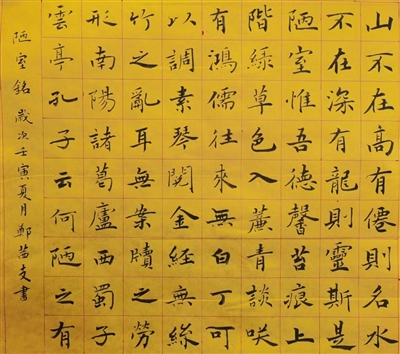 山不在高有僊則名水
不在深有龍則靈斯是
陋室惟吾德馨苔痕上
階綠草色入簾青談咲
有鴻儒往來無白丁可
以調素琴閱金經無絲
竹之亂耳無案牘之勞
形南陽諸葛廬西蜀子
雲亭孔子云何陋之有
陋室銘 歲次壬寅夏月鄭書